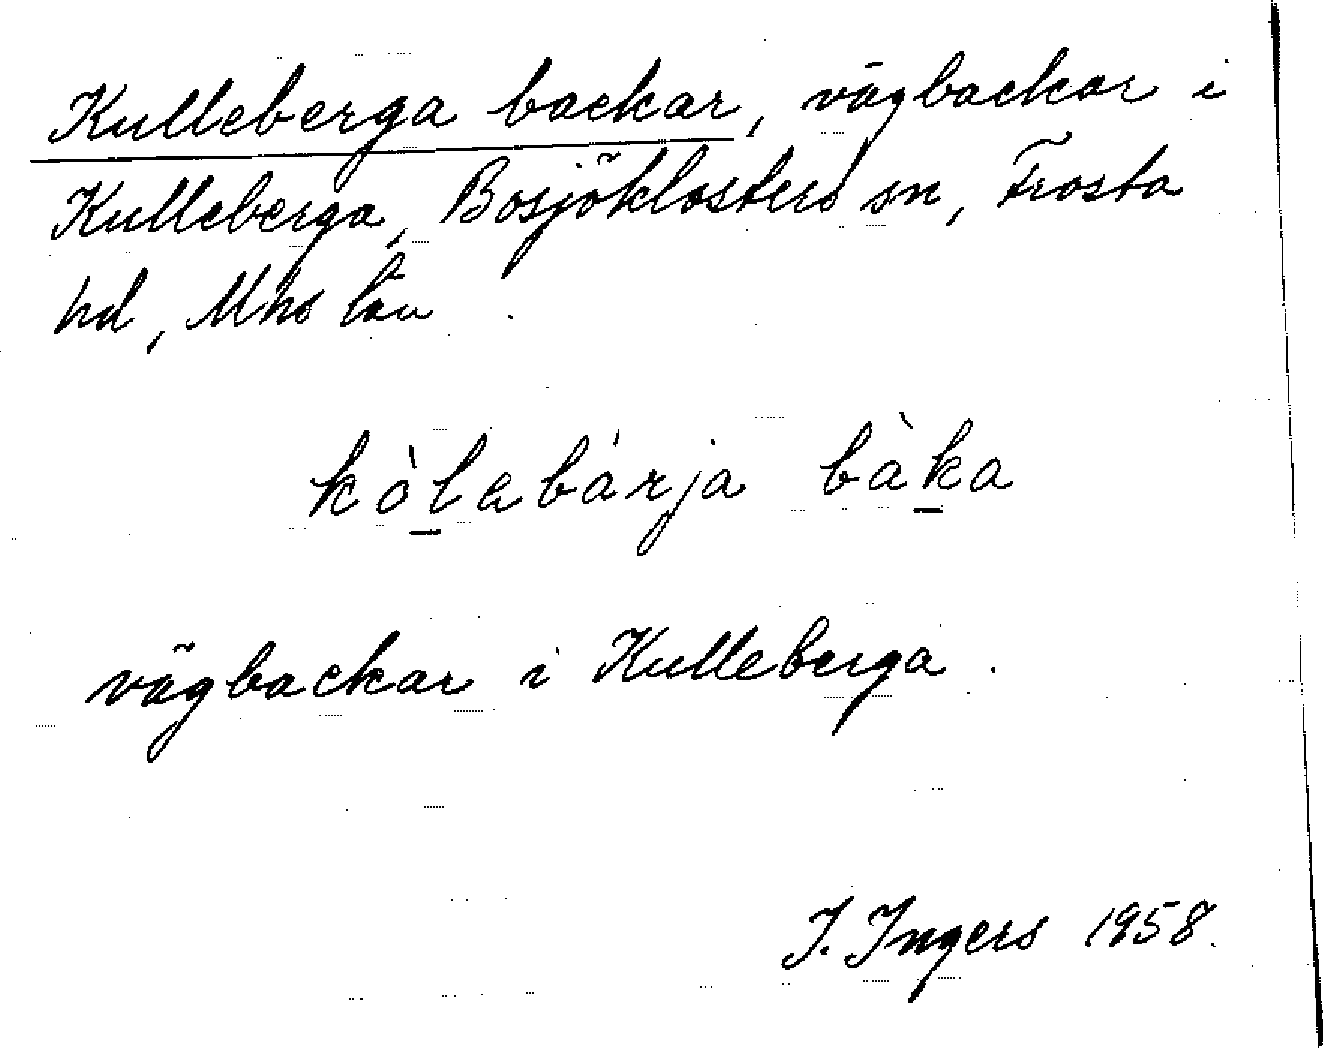 Kulleberga backar, vägbackar i
Kulleberga, Bosjöklosters sn, Frosta
hd, Mhs län
kòl̲abárja bàk̲a
vägbackar i Kulleberga.
I. Ingers 1958.